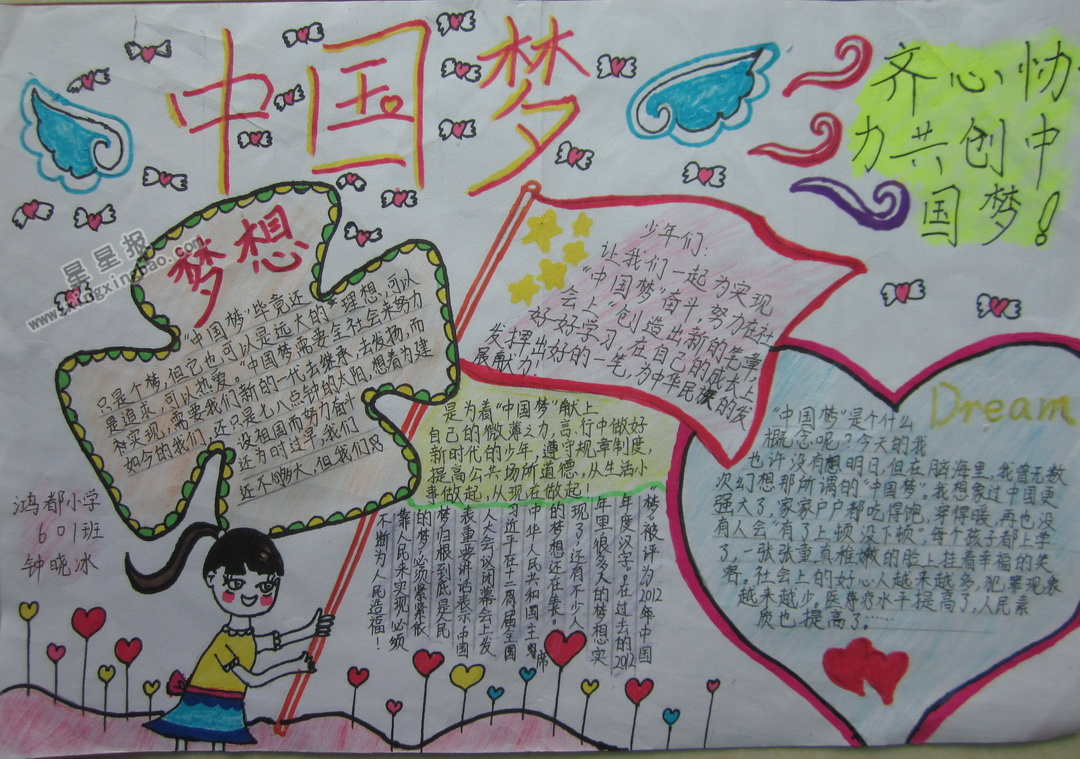 中国梦
齐心协
力共创中
国梦！
星星报
www.xingxingbao.com
梦想
"中国梦"毕竟还
只是个梦，但它也可以是远大的，理想，可以
是追求，可以热爱。"中国梦需要全社会来努力
和实现，需要我们新的一代去继承，去发扬，而
如今的我们，还只是七八点钟的太阳，想着为建
设祖国而努力奋斗
还为时过早，我们
还不够大，但我们只
是为着"中国梦"献上
自己的微薄之力，言，行中做好
新时代的少年，遵守规章制度，
提高公共场所道德，从生活小
事做起，从现在做起！
少年们：
让我们一起为实现
"中国梦"奋斗，努力在社
会上"创造出新的笔章，
好好学习，在自己的成长上
发挥出好的一笔，为中华民族的发
展献力！
Dream
"中国梦"是个什么
概念呢？今天的我
也许没有想明日，但在脑海里，我曾无数
次幻想那所谓的"中国梦"。我想象过中国更
强大了，家家户户都吃得饱，穿得暖，再也没
有人会"有了上顿，没下顿"，每个孩子都上学
了，一张张童真稚嫩的脸上挂着幸福的笑
容。社会上的好心人越来越多，犯罪现象
越来越少，医疗水平提高了，人民素
质也提高了……
梦，被评为2012年中国
年度汉字。在过去的2012
年里，很多人的梦想实
现了，还有不少人
的梦想还在继
中华人民共和国主席
习近平在十二届全国
人大会议闭幕会上发
表重要讲话表示中国
梦归根到底是人民
的梦，必须紧紧依
靠人民来实现，必须
不断为人民造福！
鸿都小学
601班
钟晓冰